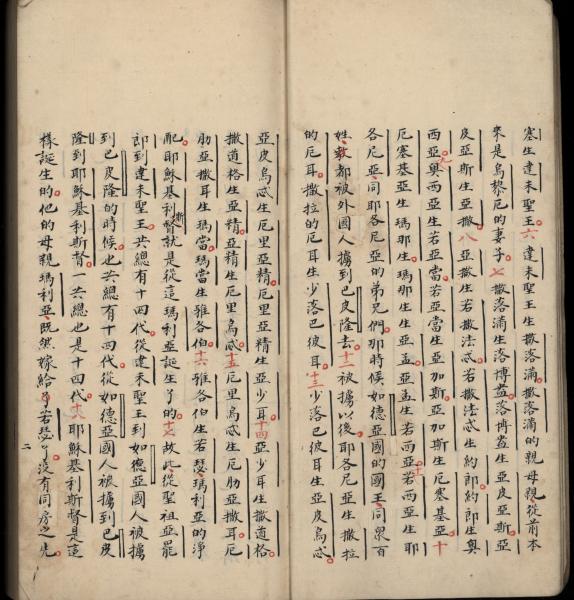 塞生達未聖王六達未聖王生撒落滿撒落滿的親母親從前本
來是烏黎厄的妻子七撒落滿生洛博盎洛博盎生亞皮亞斯亞
皮亞斯生亞撒八亞撒生若撒法忒若撒法忒生約郎約郎生奧
西亞九奧西亞生若亞當若亞當生亞加斯亞加斯生厄塞基亞十
厄塞基亞生瑪那生瑪那生生亞孟亞孟生若西亞十一若西亞生耶
各尼亞同耶各尼亞的弟兄們那時候如德亞國的國王同眾百
姓都被外國人擄到巴皮隆去十二被擄以後耶各尼亞生撒拉
的厄耳撒拉的厄耳生少落巴彼耳十三少落巴彼耳生亞皮烏忒
亞皮烏忒生厄里亞精厄里亞精生亞少耳十四亞少耳生撒道格
撒道格生亞精亞精生厄里烏忒十五厄里烏忒生厄肋亞撒耳厄
肋亞撒耳生瑪當瑪當生雅各伯十六雅各伯生若瑟瑪利亞的淨
配耶穌基利斯督就是從這瑪利亞誕生了的十七故此從聖祖亞罷
郎到達未聖王共總有十四代從達未聖王到如德亞國人被擄
到巴皮隆的時候也共總有十四代從如德亞國人被擄到巴皮
隆到耶穌基利斯督一共總也是十四代十八耶穌基利斯督是這
樣誕生的他的母親瑪利亞既然嫁給了若瑟了沒有同房之先
二